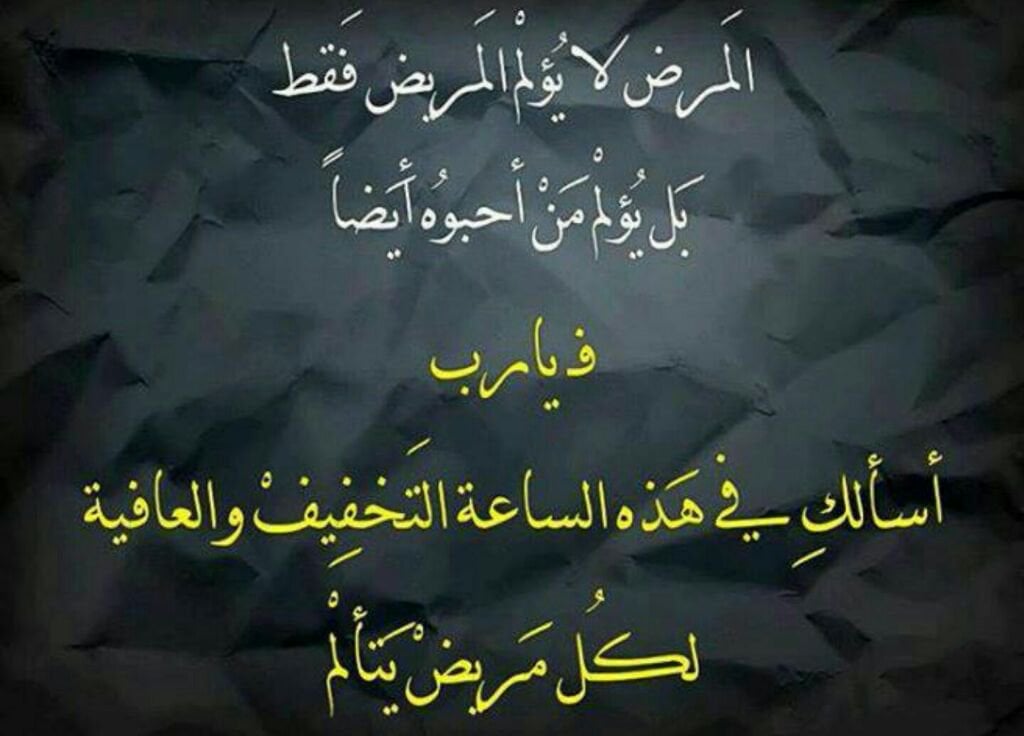 المَرض لا يُؤلمْ المَريض فَقط
بَل يُؤلمْ مَنْ أحبوُه أَيَضاً
فـ يا رب
أسألكِ في هَذه الساعة التَخفِيفْ والعافية
لكُل مَريضْ يَتألمْ